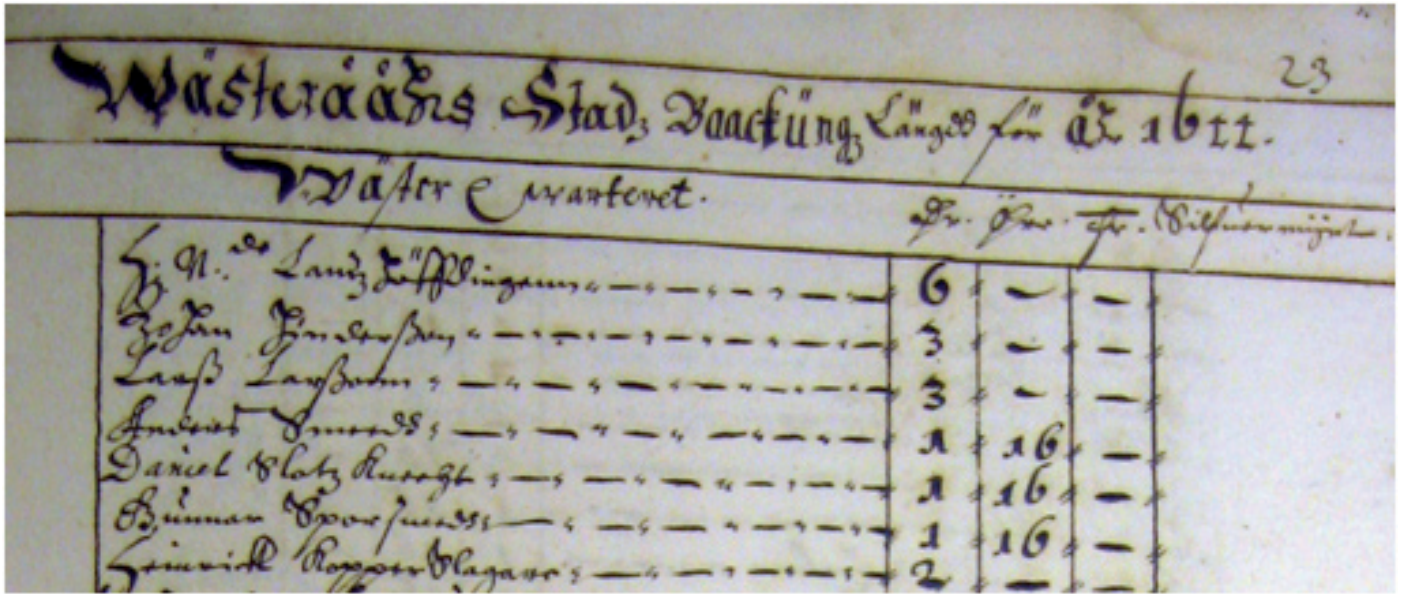 23
Wästerååhrs Stadz Baackúngz Längdd för åhr 1644.
Wäster Qwarteret.
Dr. Öre. Pr. Silfuermÿnt.
H. N. de Landz Höffdingenn 6 — —
Johan Pederßon 3 — —
Larß Larßonn 3 — —
Anders Smedh 1 16 —
Daniel Slotz Knecht 1 16 —
Gunnar Sporsmedh 1 16 —
Heinrick Kopperslagare 2 — —